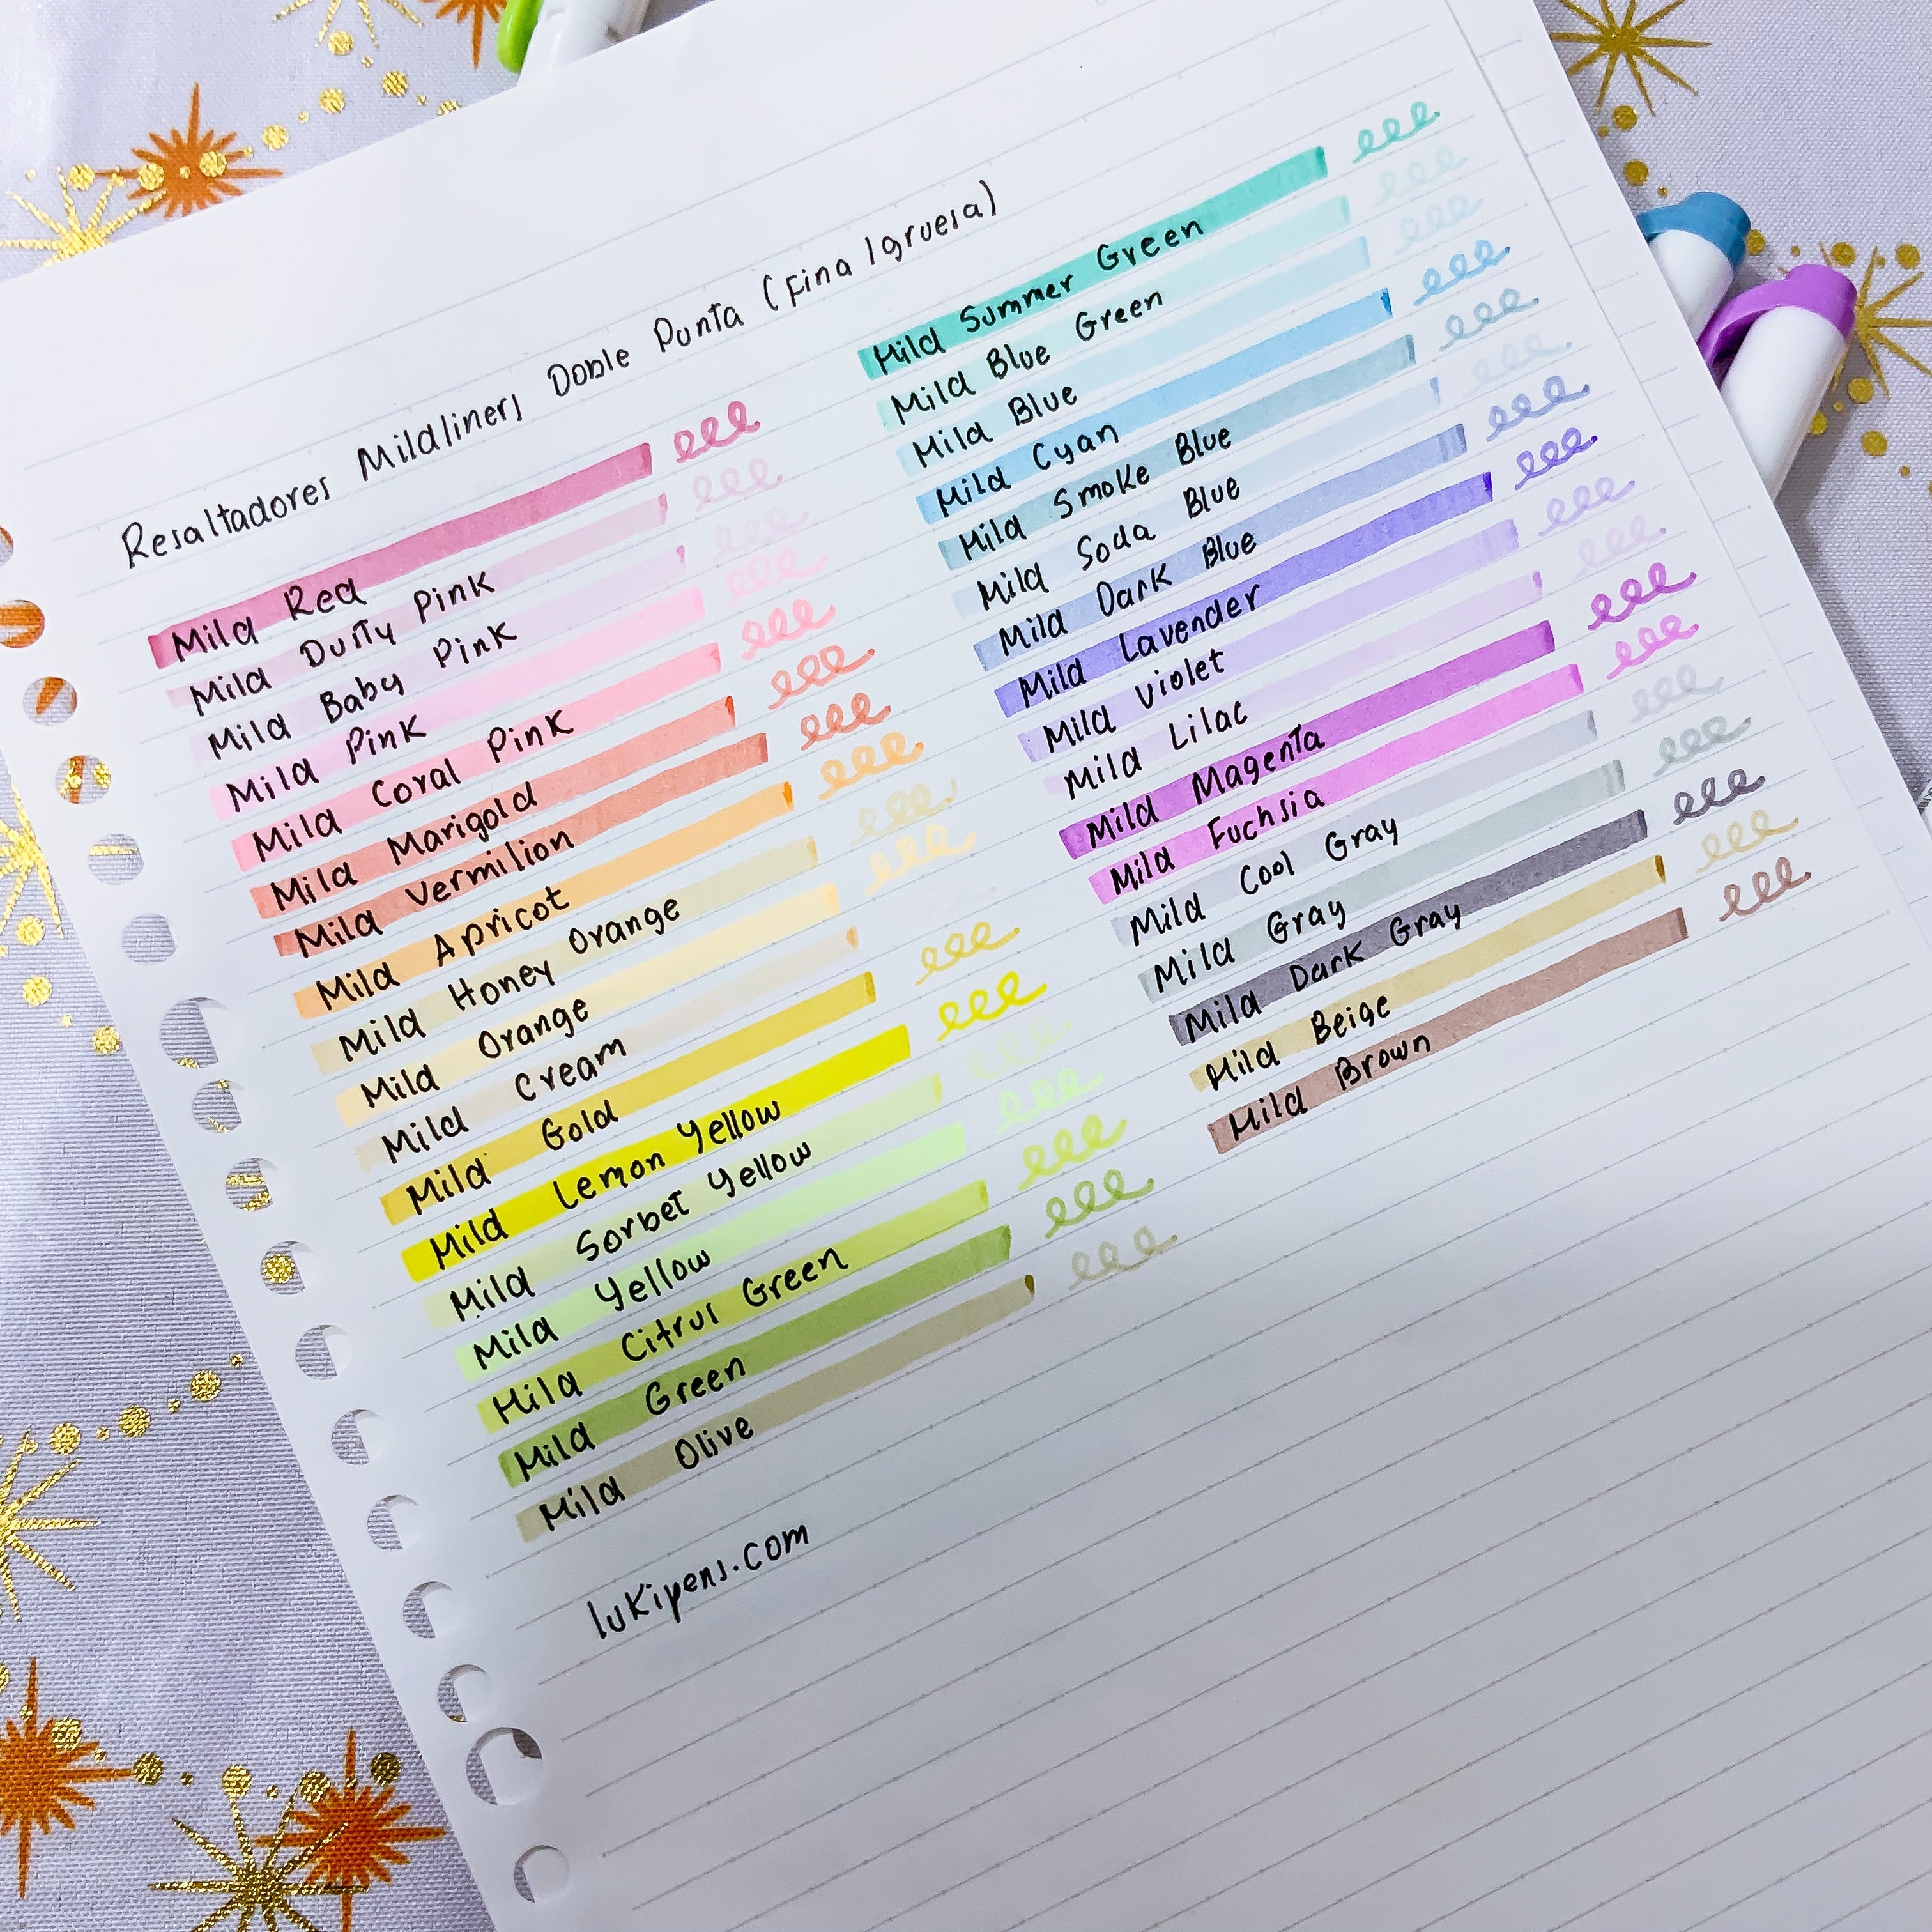 Resaltadores Mildliners Doble Punta (Fina/gruesa)
Mild Red
Mild Dusty Pink
Mild Baby Pink
Mild Pink
Mild Coral Pink
Mild Marigold
Mild Vermilion
Mild Apricot
Mild Honey Orange
Mild Orange
Mild Cream
Mild Gold
Mild Lemon Yellow
Mild Sorbet Yellow
Mild Yellow
Mild Citrus Green
Mild Green
Mild Olive
lukipens.com
Mild Summer Green
Mild Blue Green
Mild Blue
Mild Cyan
Mild Smoke Blue
Mild Soda Blue
Mild Dark Blue
Mild Lavender
Mild Violet
Mild Lilac
Mild Magenta
Mild Fuchsia
Mild Cool Gray
Mild Gray
Mild Dark Gray
Mild Beige
Mild Brown